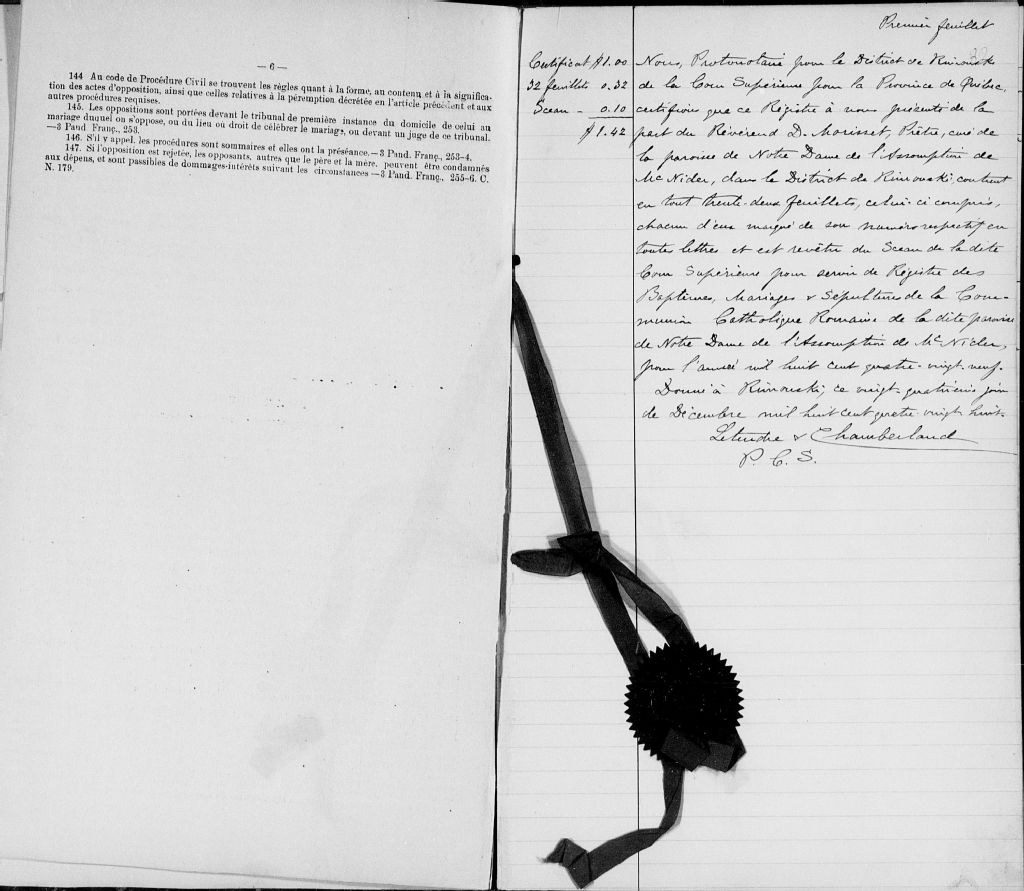 — 6 —
144 Au code de Procédure Civil se trouvent les règles quant à la forme, au contenu et à la significa-
tion des actes d'opposition, ainsi que celles relatives à la péremption décrétée en l'article précédent et aux
autres procédures requises.
145. Les oppositions sont portées devant le tribunal de première instance du domicile de celui au
mariage duquel on s'oppose, ou du lieu où droit de célébrer le mariage, ou devant un juge de ce tribunal.
—3 Pand Franç., 253.
146. S'il y appel, les procédures sont sommaires et elles ont la préséance.—3 Pand. Franç., 253-4.
147. Si l'opposition est rejetée, les opposants, autres que le père et la mère, peuvent être condamnés
aux dépens, et sont passibles de dommages-intérêts suivant les circonstances—3 Pand. Franç., 255-6. C.
N. 179.
Premier feuillet
Certificat $1.00
32 feuillets 0.32
Sceau - 0.10
$1.42
Nous, Protonotaire pour le District de Rimouski
de la Cour Supérieure pour la Province de Québec,
certifions que ce Régistre à nous présenté de la
part du Révérend D. Morisset, Prêtre, curé de
la paroisse de Notre Dame de l'Assomption de
McNider, dans le District de Rimouski, contient
en tout trente-deux feuillets, celui-ci compris,
chacun d'eux marqué de son numéro respectif en
toutes lettres et est revêtu du Sceau de la dite
Cour Supérieure pour servir de Régistre des
Baptêmes, Mariages & Sépultures de la Com-
munion Catholique Romaine de la dite paroisse
de Notre Dame de l'Assomption de McNider,
pour l'année mil huit cent quatre-vingt-neuf.
Donné à Rimouski, ce vingt-quatrième jour
de Décembre mil huit cent quatre-vingt-huit.
Letendre & Chamberland
P. C. S.